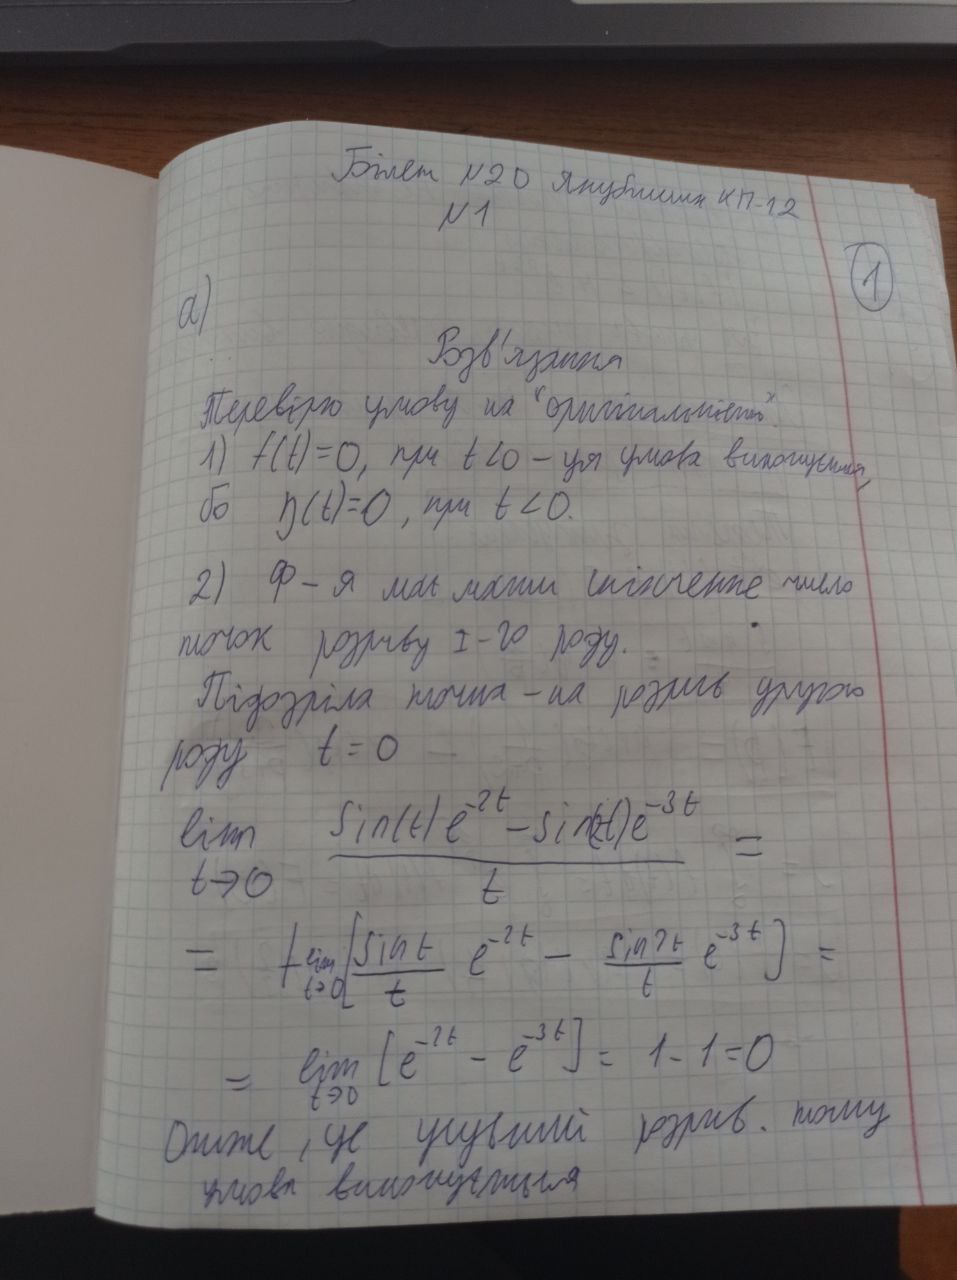 Білет №20 Якубишин КП-12
№1
1
а)
Розв'язання
Перевірю умову на "оригінальність".
1) f(t)=0, при t<0 – ця умова виконується,
бо η(t)=0, при t<0.
2) Ф-я має мати скінченне число
точок розриву I-го роду.
Підозріла точка – на розрив другого
роду t=0
lim t→0 (sin(t)e^{-2t} – sin(2t)e^{-3t})/t =
= lim t→0 [sin t/t e^{-2t} – sin2t/t e^{-3t}] =
= lim t→0 [e^{-2t} – e^{-3t}] = 1-1=0
Отже, це усувний розрив. тому
умова виконується